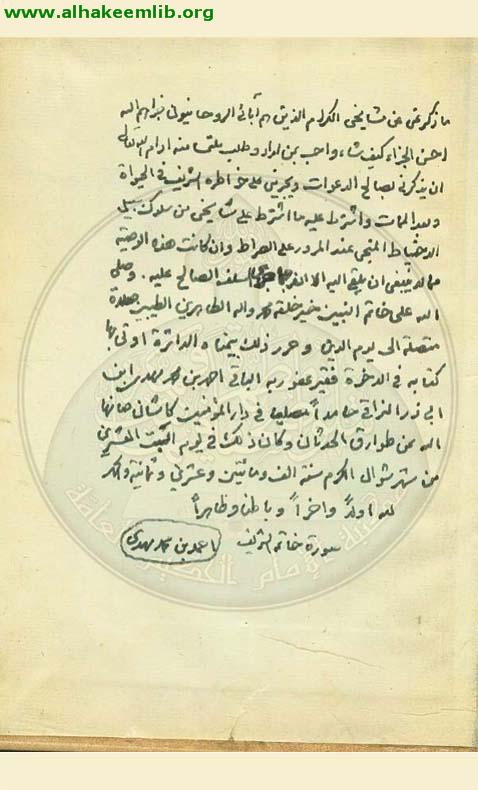 www.alhakeemlib.org
ما ذكرته عن مشايخي الكرام الذين هم آبائي الروحانيون جزاهم الله
احسن الجزاء كيف شاء واحب بمن اراد وطلب ملتمسا منه ادام الله تعالى
ان يذكرني بصالح الدعوات ويجريني على خواطره الشريف في الحيوة
وبعد الممات واشترط عليه ما اشترط على مشايخي من سلوك سبيل
الاحتياط المنجي عند المرور على الصراط وان كانت هذه الوصية
مما لا ينبغي ان يلقى اليه الا السلف الصالح عليه . وصلى
الله على خاتم النبيين خير خلقه محمد واله الطاهرين الطيبين صلاة
متصلة الى يوم الدين وحرر ذلك بيمناه الداثرة اوتي بها
كتابه في الاخرة فقير عفو ربه الباقي احمد بن محمد مهدي ابن
ابي ذر النراقي حامداً مصليا في دار المؤمنين كاشان صانها
الله عن طوارق الحدثان وكان ذلك في يوم السبت العشرين
من شهر شوال المكرم سنة الف ومائتين وعشرين وثمانية والحمد
لله اولاً واخراً وباطنا وظاهراً
صورة خاتمه الشريف
احمد بن محمد مهدي